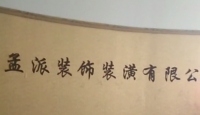 孟派装饰装潢有限公